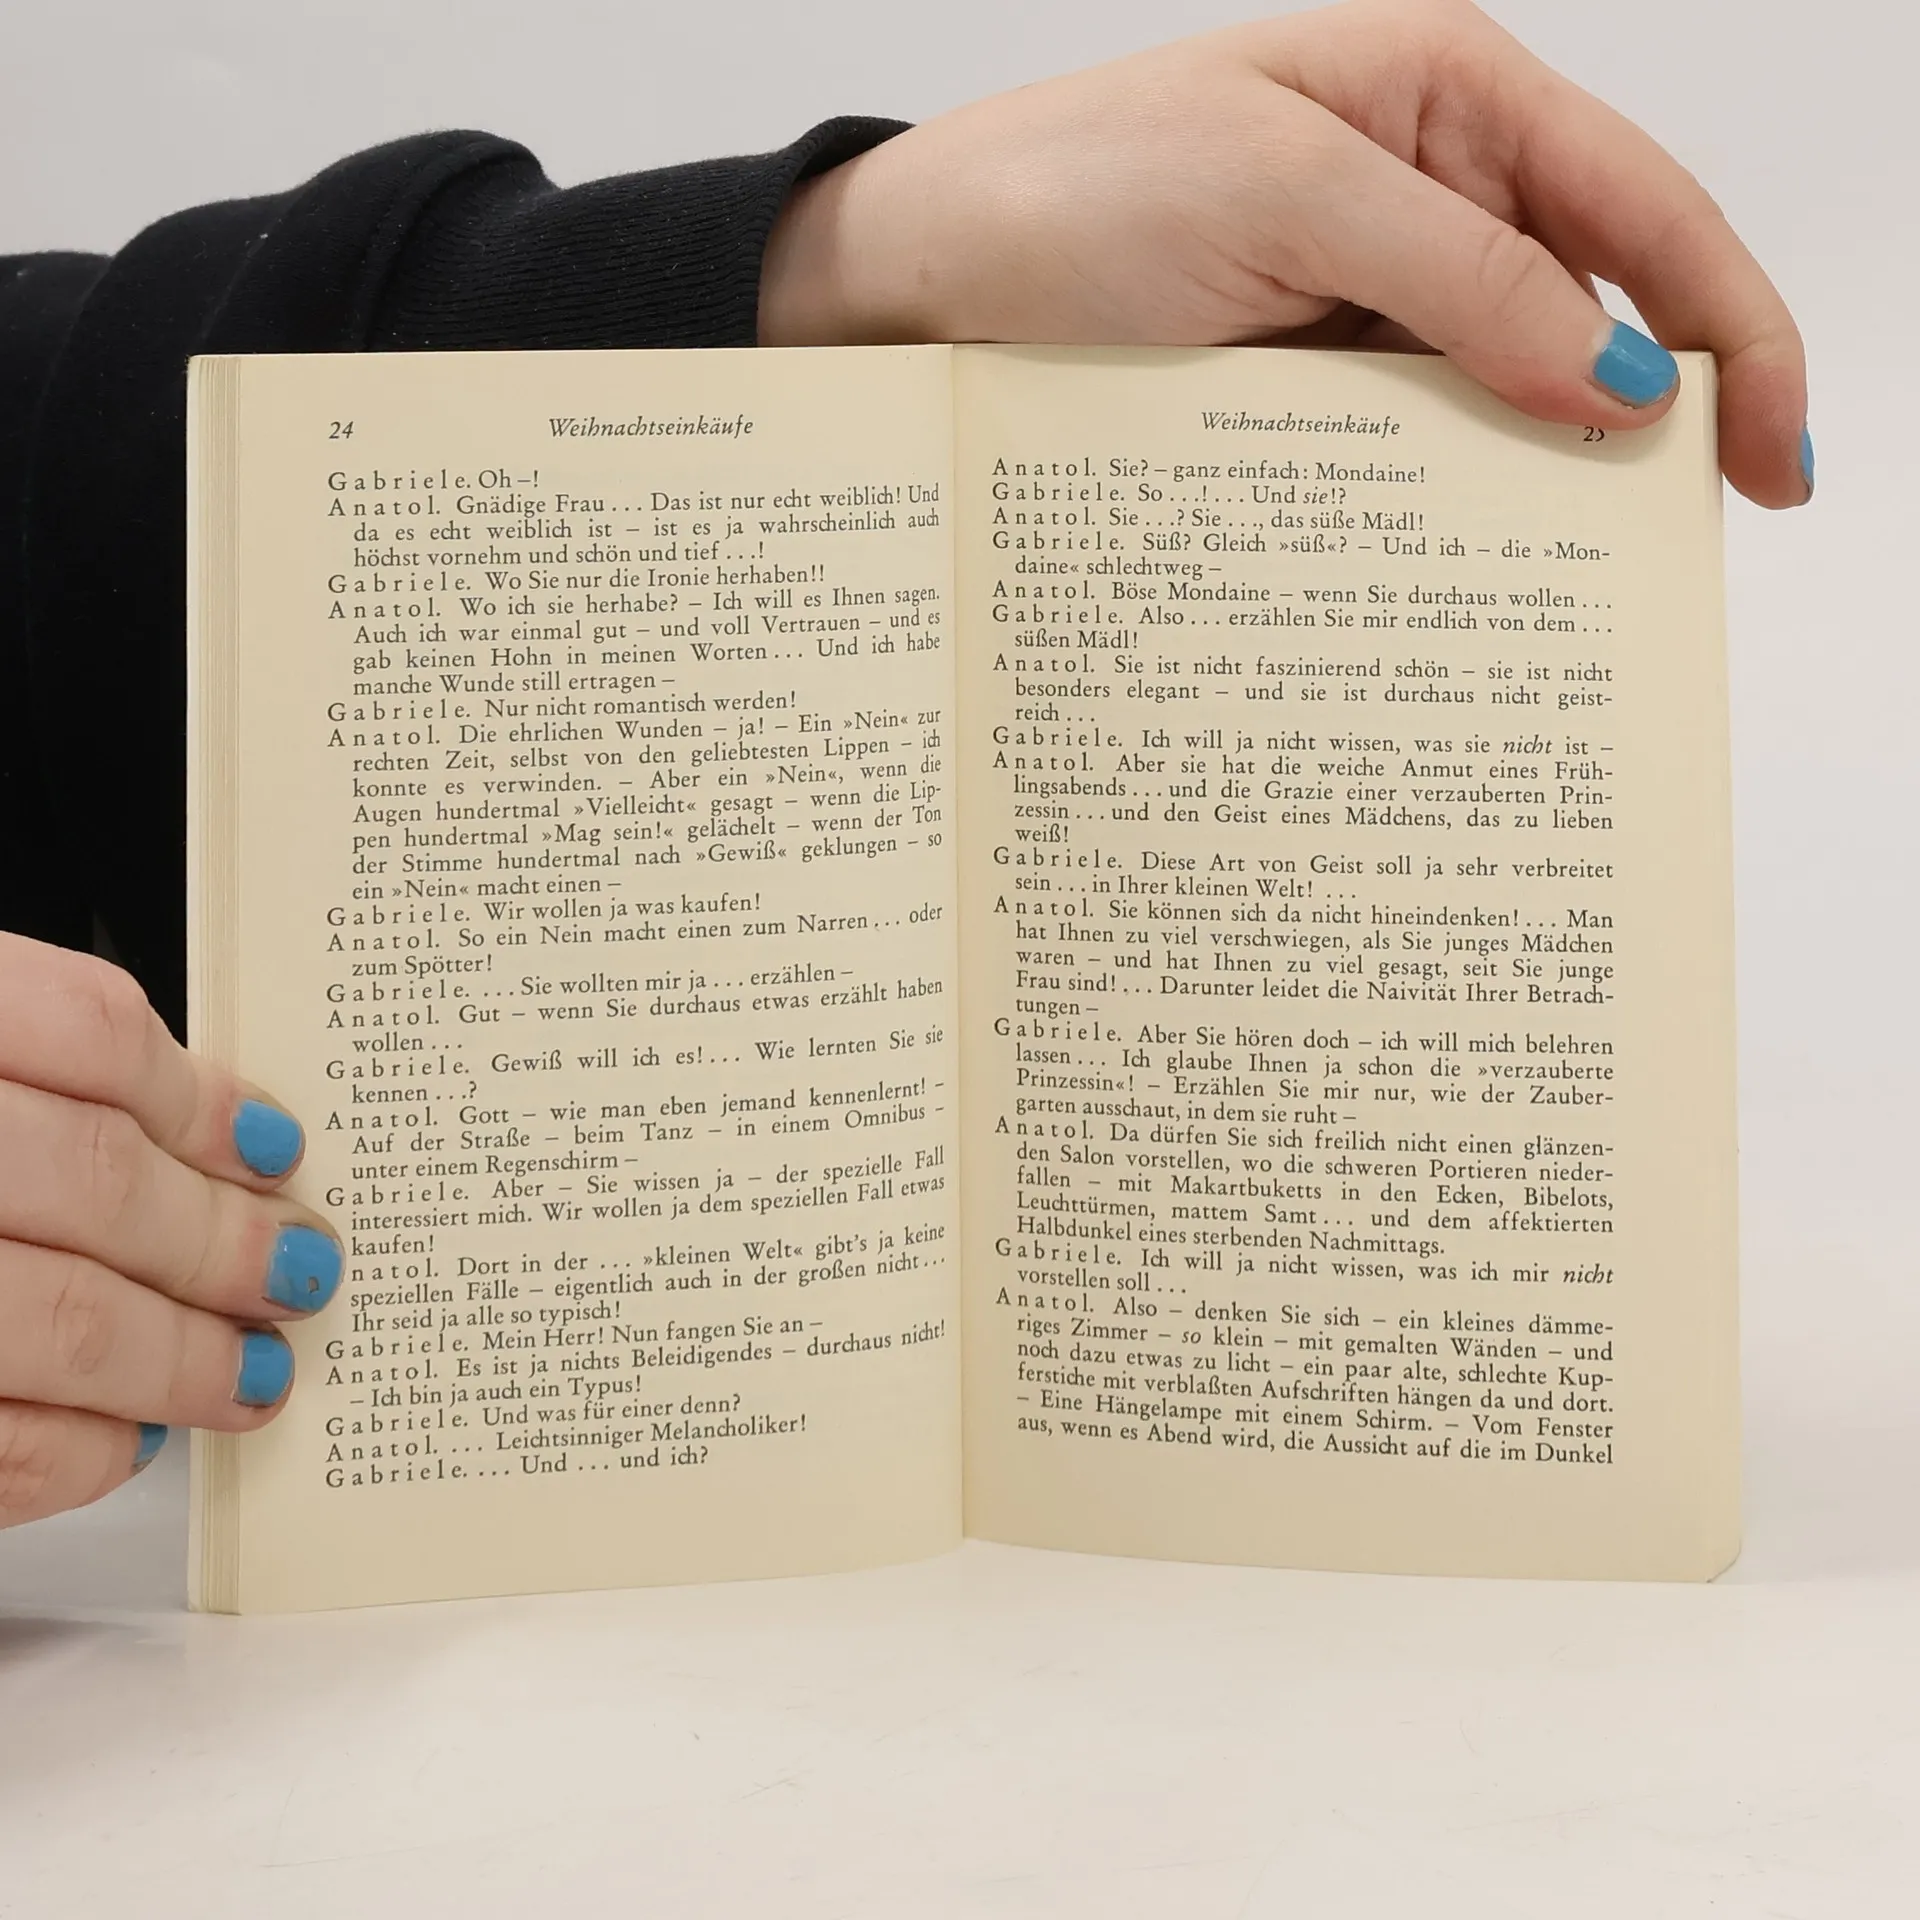 24 Weihnachtseinkäufe
Gabriele. Oh –!
Anatol. Gnädige Frau ... Das ist nur echt weiblich! Und
da es echt weiblich ist – ist es ja wahrscheinlich auch
höchst vornehm und schön und tief ...!
Gabriele. Wo Sie nur die Ironie herhaben!!
Anatol. Wo ich sie herhabe? – Ich will es Ihnen sagen.
Auch ich war einmal gut – und voll Vertrauen – und es
gab keinen Hohn in meinen Worten ... Und ich habe
manche Wunde still ertragen –
Gabriele. Nur nicht romantisch werden!
Anatol. Die ehrlichen Wunden – ja! – Ein »Nein« zur
rechten Zeit, selbst von den geliebtesten Lippen – ich
konnte es verwinden. – Aber ein »Nein«, wenn die
Augen hundertmal »Vielleicht« gesagt – wenn die Lip-
pen hundertmal »Mag sein!« gelächelt – wenn der Ton
der Stimme hundertmal nach »Gewiß« geklungen – so
ein »Nein« macht einen –
Gabriele. Wir wollen ja was kaufen!
Anatol. So ein Nein macht einen zum Narren ... oder
zum Spötter!
Gabriele. ... Sie wollten mir ja ... erzählen –
Anatol. Gut – wenn Sie durchaus etwas erzählt haben
wollen ...
Gabriele. Gewiß will ich es! ... Wie lernten Sie sie
kennen ...?
Anatol. Gott – wie man eben jemand kennenlernt! –
Auf der Straße – beim Tanz – in einem Omnibus –
unter einem Regenschirm –
Gabriele. Aber – Sie wissen ja – der spezielle Fall
interessiert mich. Wir wollen ja dem speziellen Fall etwas
kaufen!
natol. Dort in der ... »kleinen Welt« gibt's ja keine
speziellen Fälle – eigentlich auch in der großen nicht ...
Ihr seid ja alle so typisch!
Gabriele. Mein Herr! Nun fangen Sie an –
Anatol. Es ist ja nichts Beleidigendes – durchaus nicht!
– Ich bin ja auch ein Typus!
Gabriele. Und was für einer denn?
Anatol. ... Leichtsinniger Melancholiker!
Gabriele. ... Und ... und ich?
Weihnachtseinkäufe 25
Anatol. Sie? – ganz einfach: Mondaine!
Gabriele. So ...! ... Und sie!?
Anatol. Sie ...? Sie ..., das süße Mädl!
Gabriele. Süß? Gleich »süß«? – Und ich – die »Mon-
daine« schlechtweg –
Anatol. Böse Mondaine – wenn Sie durchaus wollen ...
Gabriele. Also ... erzählen Sie mir endlich von dem ...
süßen Mädl!
Anatol. Sie ist nicht faszinierend schön – sie ist nicht
besonders elegant – und sie ist durchaus nicht geist-
reich ...
Gabriele. Ich will ja nicht wissen, was sie nicht ist –
Anatol. Aber sie hat die weiche Anmut eines Früh-
lingsabends ... und die Grazie einer verzauberten Prin-
zessin ... und den Geist eines Mädchens, das zu lieben
weiß!
Gabriele. Diese Art von Geist soll ja sehr verbreitet
sein ... in Ihrer kleinen Welt! ...
Anatol. Sie können sich da nicht hineindenken! ... Man
hat Ihnen zu viel verschwiegen, als Sie junges Mädchen
waren – und hat Ihnen zu viel gesagt, seit Sie junge
Frau sind! ... Darunter leidet die Naivität Ihrer Betrach-
tungen –
Gabriele. Aber Sie hören doch – ich will mich belehren
lassen ... Ich glaube Ihnen ja schon die »verzauberte
Prinzessin«! – Erzählen Sie mir nur, wie der Zauber-
garten ausschaut, in dem sie ruht –
Anatol. Da dürfen Sie sich freilich nicht einen glänzen-
den Salon vorstellen, wo die schweren Portieren nieder-
fallen – mit Makartbuketts in den Ecken, Bibelots,
Leuchttürmen, mattem Samt ... und dem affektierten
Halbdunkel eines sterbenden Nachmittags.
Gabriele. Ich will ja nicht wissen, was ich mir nicht
vorstellen soll ...
Anatol. Also – denken Sie sich – ein kleines dämme-
riges Zimmer – so klein – mit gemalten Wänden – und
noch dazu etwas zu licht – ein paar alte, schlechte Kup-
ferstiche mit verblaßten Aufschriften hängen da und dort.
– Eine Hängelampe mit einem Schirm. – Vom Fenster
aus, wenn es Abend wird, die Aussicht auf die im Dunkel